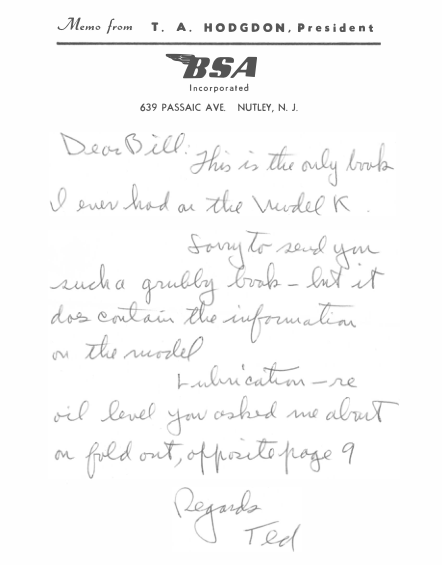 Memo from T. A. HODGDON, President
BSA
Incorporated
639 PASSAIC AVE. NUTLEY, N. J.
Dear Bill:
This is the only book
I ever had on the Model K.
Sorry to send you
such a grubby book - but it
does contain the information
on the model
Lubrication - re
oil level you asked me about
on fold out, opposite page 9
Regards
Ted